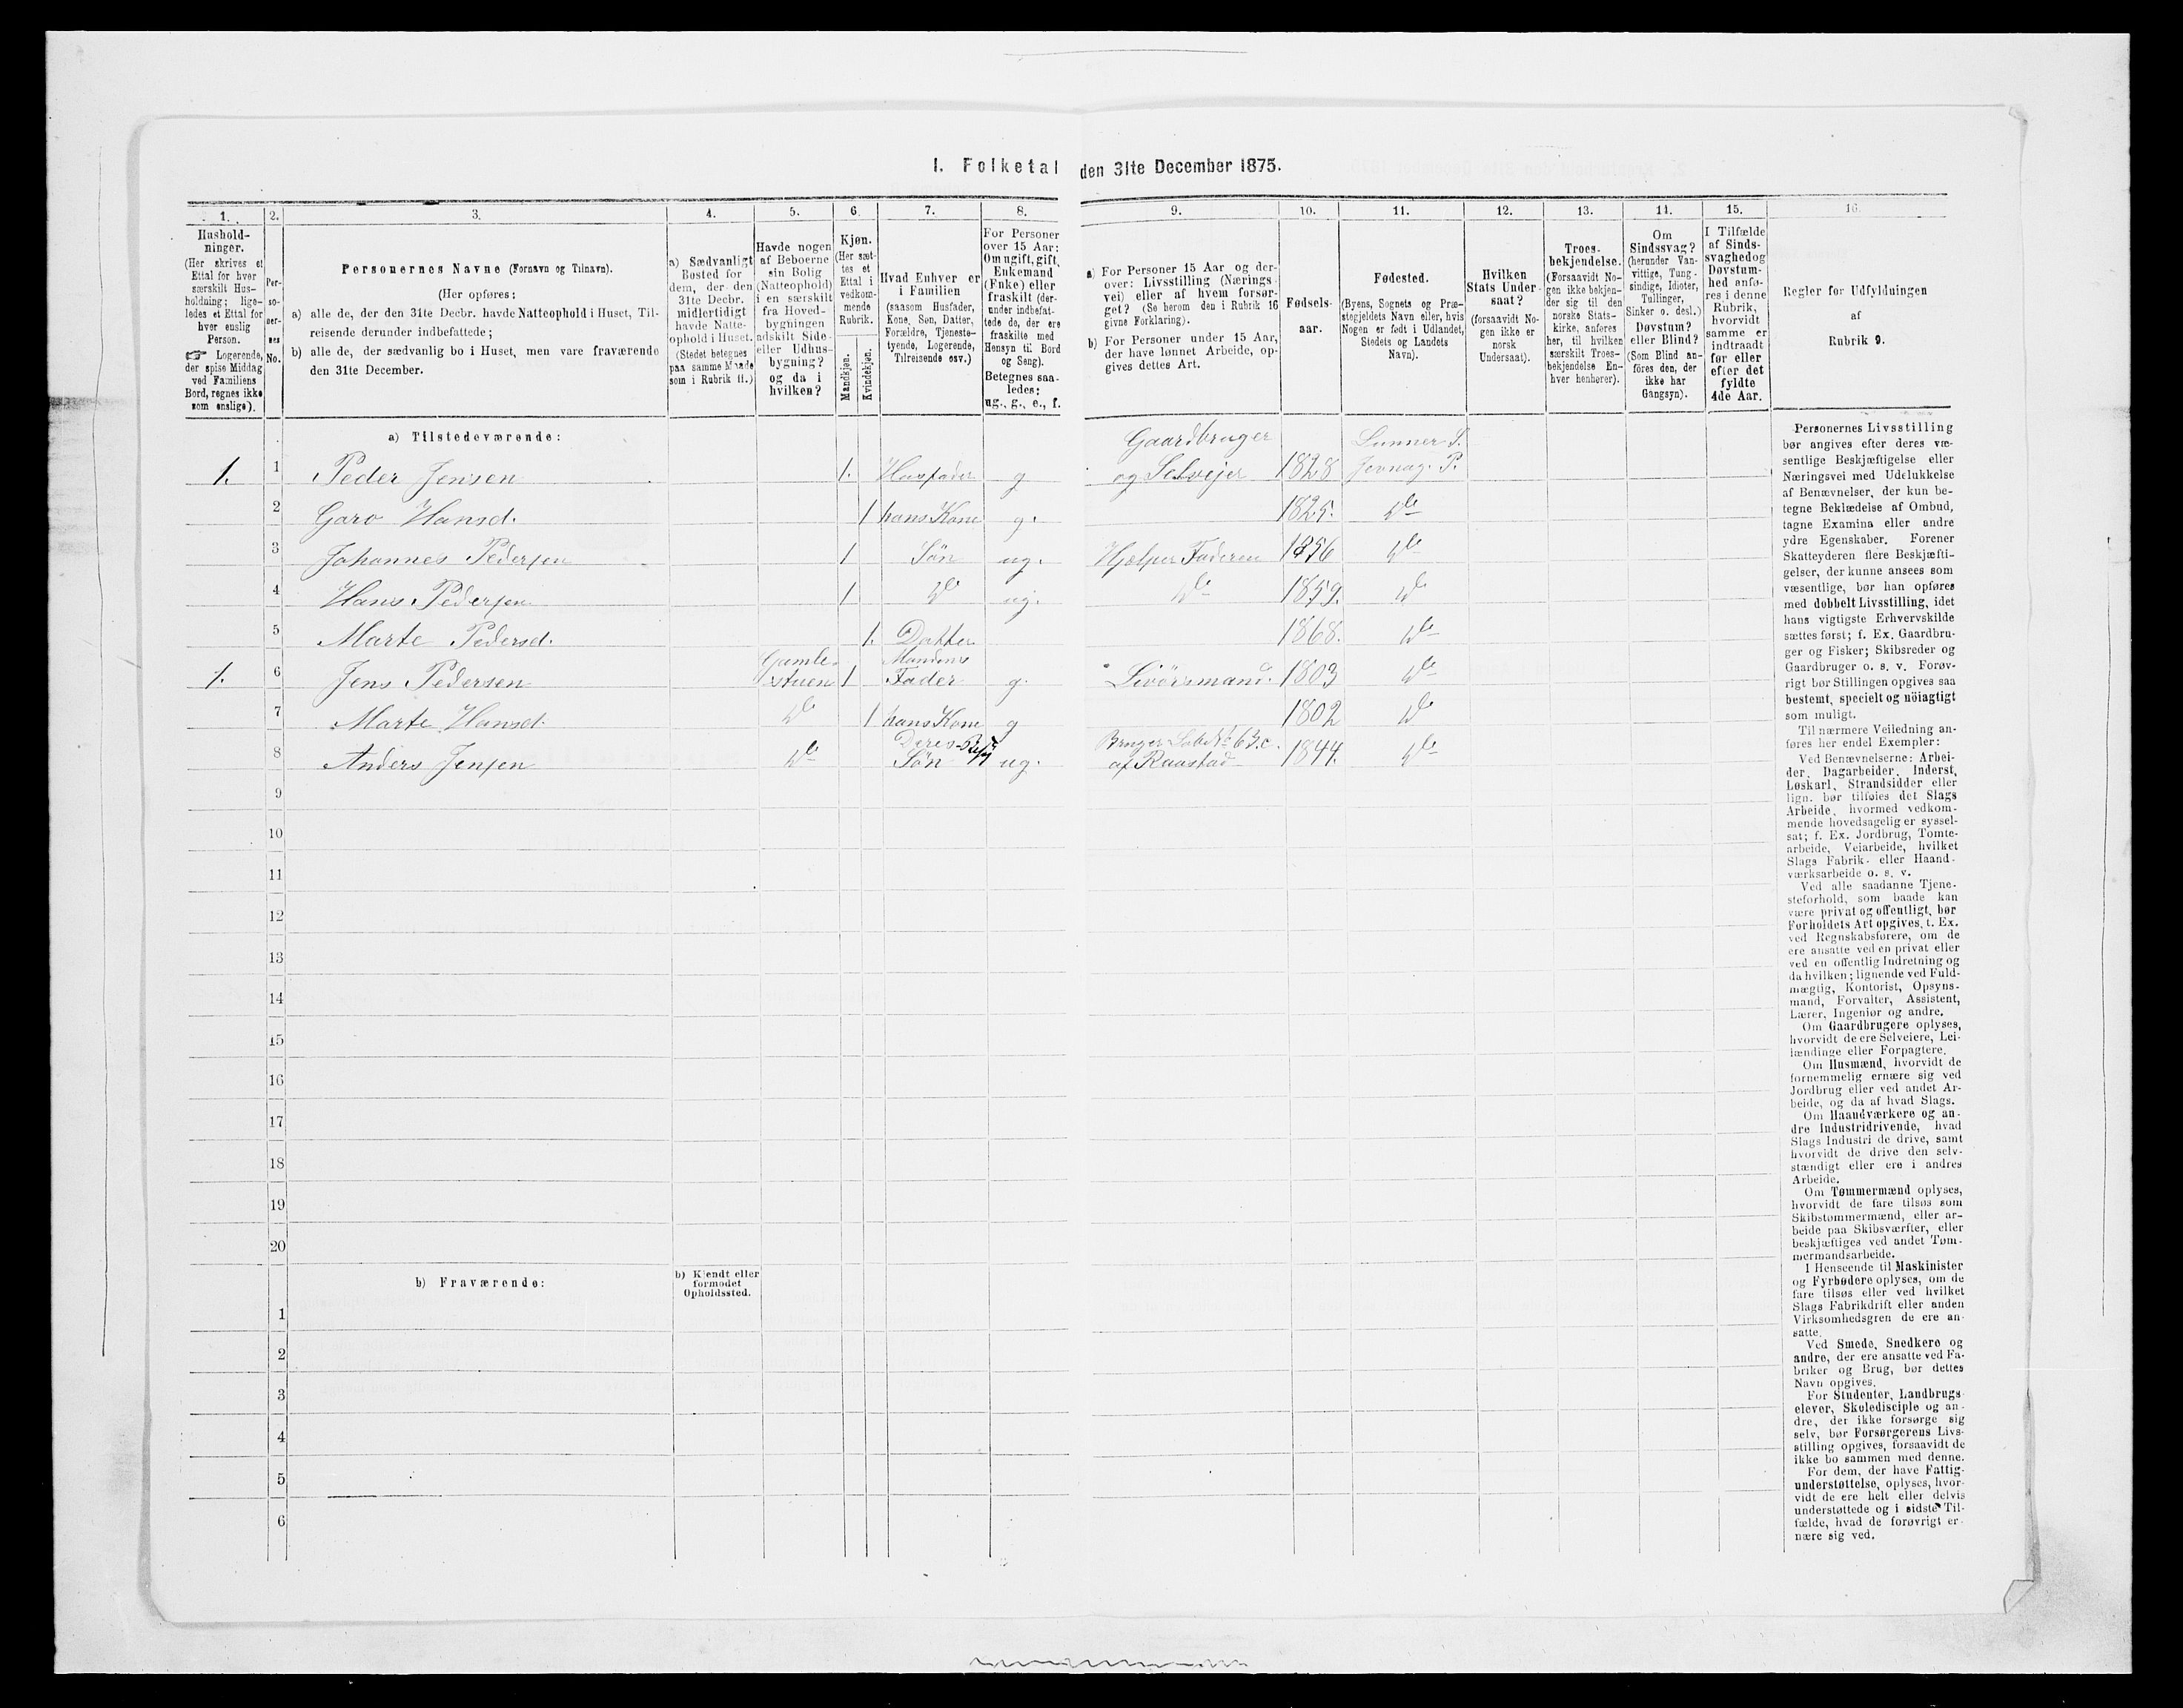 I. Folketal den 31te December 1875.
1.
Hushold-
ninger.
(Her skrives et
Ettal for hver
særskilt Hus-
holdning; lige-
ledes et Ettal for
hver enslig
Person.
☞ Logerende,
der spise Middag
ved Familiens
Bord, regnes ikke
som enslige).
2.
Per-
so-
ner-
nes
No.
3.
Personernes Navne (Fornavn og Tilnavn).
(Her opføres:
a) alle de, der den 31te Decbr. havde Natteophold i Huset, Til-
reisende derunder indbefattede;
b) alle de, der sædvanlig bo i Huset, men vare fraværende
den 31te December.
4.
a) Sædvanligt
Bosted for
dem, der den
31te Decbr.
midlertidigt
havde Natte-
ophold i Huset.
(Stedet betegnes
paa samme Maade
som i Rubrik 11.)
5.
Havde nogen
af Beboerne
sin Bolig
(Natteophold)
i en særskilt
fra Hoved-
bygningen
adskilt Side-
eller Udhus-
bygning?
og da i
hvilken?
6.
Kjøn.
(Her sæt-
tes et
Ettal i
vedkom-
mende
Rubrik.
Mandkjøn.
Kvindekjøn.
7.
Hvad Enhver er
i Familien
(saasom Husfader,
Kone, Søn, Datter,
Forældre, Tjeneste-
tyende, Logerende,
Tilreisende osv.)
8.
For Personer
over 15 Aar:
Om ugift, gift,
Enkemand
(Enke) eller
fraskilt (der-
under indbefat-
tede de, der ere
fraskilte med
Hensyn til Bord
og Seng).
Betegnes saa-
ledes:
ug., g., e., f.
9.
a) For Personer 15 Aar og der-
over: Livsstilling (Nærings-
vei) eller af hvem forsør-
get? (Se herom den i Rubrik 16
givne Forklaring).
b) For Personer under 15 Aar,
der have lønnet Arbeide, op-
gives dettes Art.
10.
Fødsels-
aar.
11.
Fødested.
(Byens, Sognets og Præ-
stegjeldets Navn eller, hvis
Nogen er født i Udlandet,
Stedets og Landets
Navn).
12.
Hvilken
Stats Under-
saat?
(forsaavidt No-
gen ikke er
norsk
Undersaat).
13.
Troes-
bekjendelse.
(Forsaavidt No-
gen ikke bekjen-
der sig til den
norske Stats-
kirke, anføres
her, til hvilken
særskilt Troes-
bekjendelse En-
hver henhører).
14.
Om
Sindssvag?
(herunder Van-
vittige, Tung-
sindige, Idioter,
Tullinger,
Sinker o. desl.)
Døvstum?
eller Blind?
(Som Blind an-
föres den, der
ikke har
Gangsyn).
15.
I Tilfælde
af Sinds-
svaghed og
Døvstum-
hed anfø-
res i denne
Rubrik,
hvorvidt
samme er
indtraadt
før eller
efter det
fyldte
4de Aar.
16.
Regler for Udfyldningen
af
Rubrik 9.
a) Tilstedeværende:
Gaardbruger Lunner S.
1. 1 Peder Jensen 1. Husfader g og Selvejer 1828 Jevnag. P.
2 Garo Hansd. 1 hans Kone g. 1825. do
3 Johannes Pedersen 1 Søn ug. Hjelper Faderen 1856 do
4 Hans Pedersen 1 do ug. do 1859. do
5 Marte Pedersd. 1. Datter 1868. do
Gamle- Mandens
1. 6 Jens Pedersen stuen 1 Fader g. Livörsmand. 1803 do
7 Marte Hansd. do 1 hans Kone g 1802 do
Deres Bruger Lab No 63.c.
8 Anders Jensen do Søn ug. af Raastad 1844. do
9
10
11
12
13
14
15
16
17
18
19
20
b) Fraværende:
b) Kjendt eller
formodet
Opholdssted.
1
2
3
4
5
6
Personernes Livsstilling
bør angives efter deres væ-
sentlige Beskjæftigelse eller
Næringsvei med Udelukkelse
af Benævnelser, der kun be-
tegne Beklædelse af Ombud,
tagne Examina eller andre
ydre Egenskaber. Forener
Skatteyderen flere Beskjæfti-
gelser, der kunne ansees som
væsentlige, bør han opføres
med dobbelt Livsstilling, idet
hans vigtigste Erhvervskilde
sættes først; f. Ex. Gaardbru-
ger og Fisker; Skibsreder og
Gaardbruger o. s. v. Forøv-
rigt bør Stillingen opgives saa
bestemt, specielt og nöiagtigt
som muligt.
Til nærmere Veiledning an-
føres her endel Exempler:
Ved Benævnelserne: Arbei-
der, Dagarbeider, Inderst,
Løskarl, Strandsidder eller
lign. bør tilføies det Slags
Arbeide, hvormed vedkom-
mende hovedsagelig er syssel-
sat; f. Ex. Jordbrug, Tomte-
arbeide, Veiarbeide, hvilket
Slags Fabrik- eller Haand-
værksarbeide o. s. v.
Ved alle saadanne Tjene-
steforhold, som baade kan
være privat og offentligt, bør
Forholdets Art opgives, t. Ex.
ved Regnskabsførere, om de
ere ansatte ved en privat eller
ved en offentlig Indretning og
da hvilken; lignende ved Fuld-
mægtig, Kontorist, Opsyns-
mand, Forvalter, Assistent,
Lærer, Ingeniør og andre.
Om Gaardbrugere oplyses,
hvorvidt de ere Selveiere, Lei-
lændinge eller Forpagtere.
Om Husmænd, hvorvidt de
fornemmelig ernære sig ved
Jordbrug eller ved andet Ar-
beide, og da af hvad Slags.
Om Haandværkere og an-
dre Industridrivende, hvad
Slags Industri de drive, samt
hvorvidt de drive den selv-
stændigt eller ere i andres
Arbeide.
Om Tømmermænd oplyses,
hvorvidt de fare tilsøs som
Skibstømmermænd, eller ar-
beide paa Skibsværfter, eller
beskjæftiges ved andet Tøm-
mermandsarbeide.
I Henseende til Maskinister
og Fyrbødere oplyses, om de
fare tilsøs eller ved hvilket
Slags Fabrikdrift eller anden
Virksomhedsgren de ere an-
satte.
Ved Smede, Snedkere og
andre, der ere ansatte ved Fa-
briker og Brug, bør dettes
Navn opgives.
For Studenter, Landbrugs-
elever, Skoledisciple og an-
dre, der ikke forsørge sig
selv, bør Forsørgerens Livs-
stilling opgives, forsaavidt de
ikke bo sammen med denne.
For dem, der have Fattig-
understøttelse, oplyses, hvor-
vidt de ere helt eller delvis
understøttede og i sidste Til-
fælde, hvad de forøvrigt er-
nære sig ved.